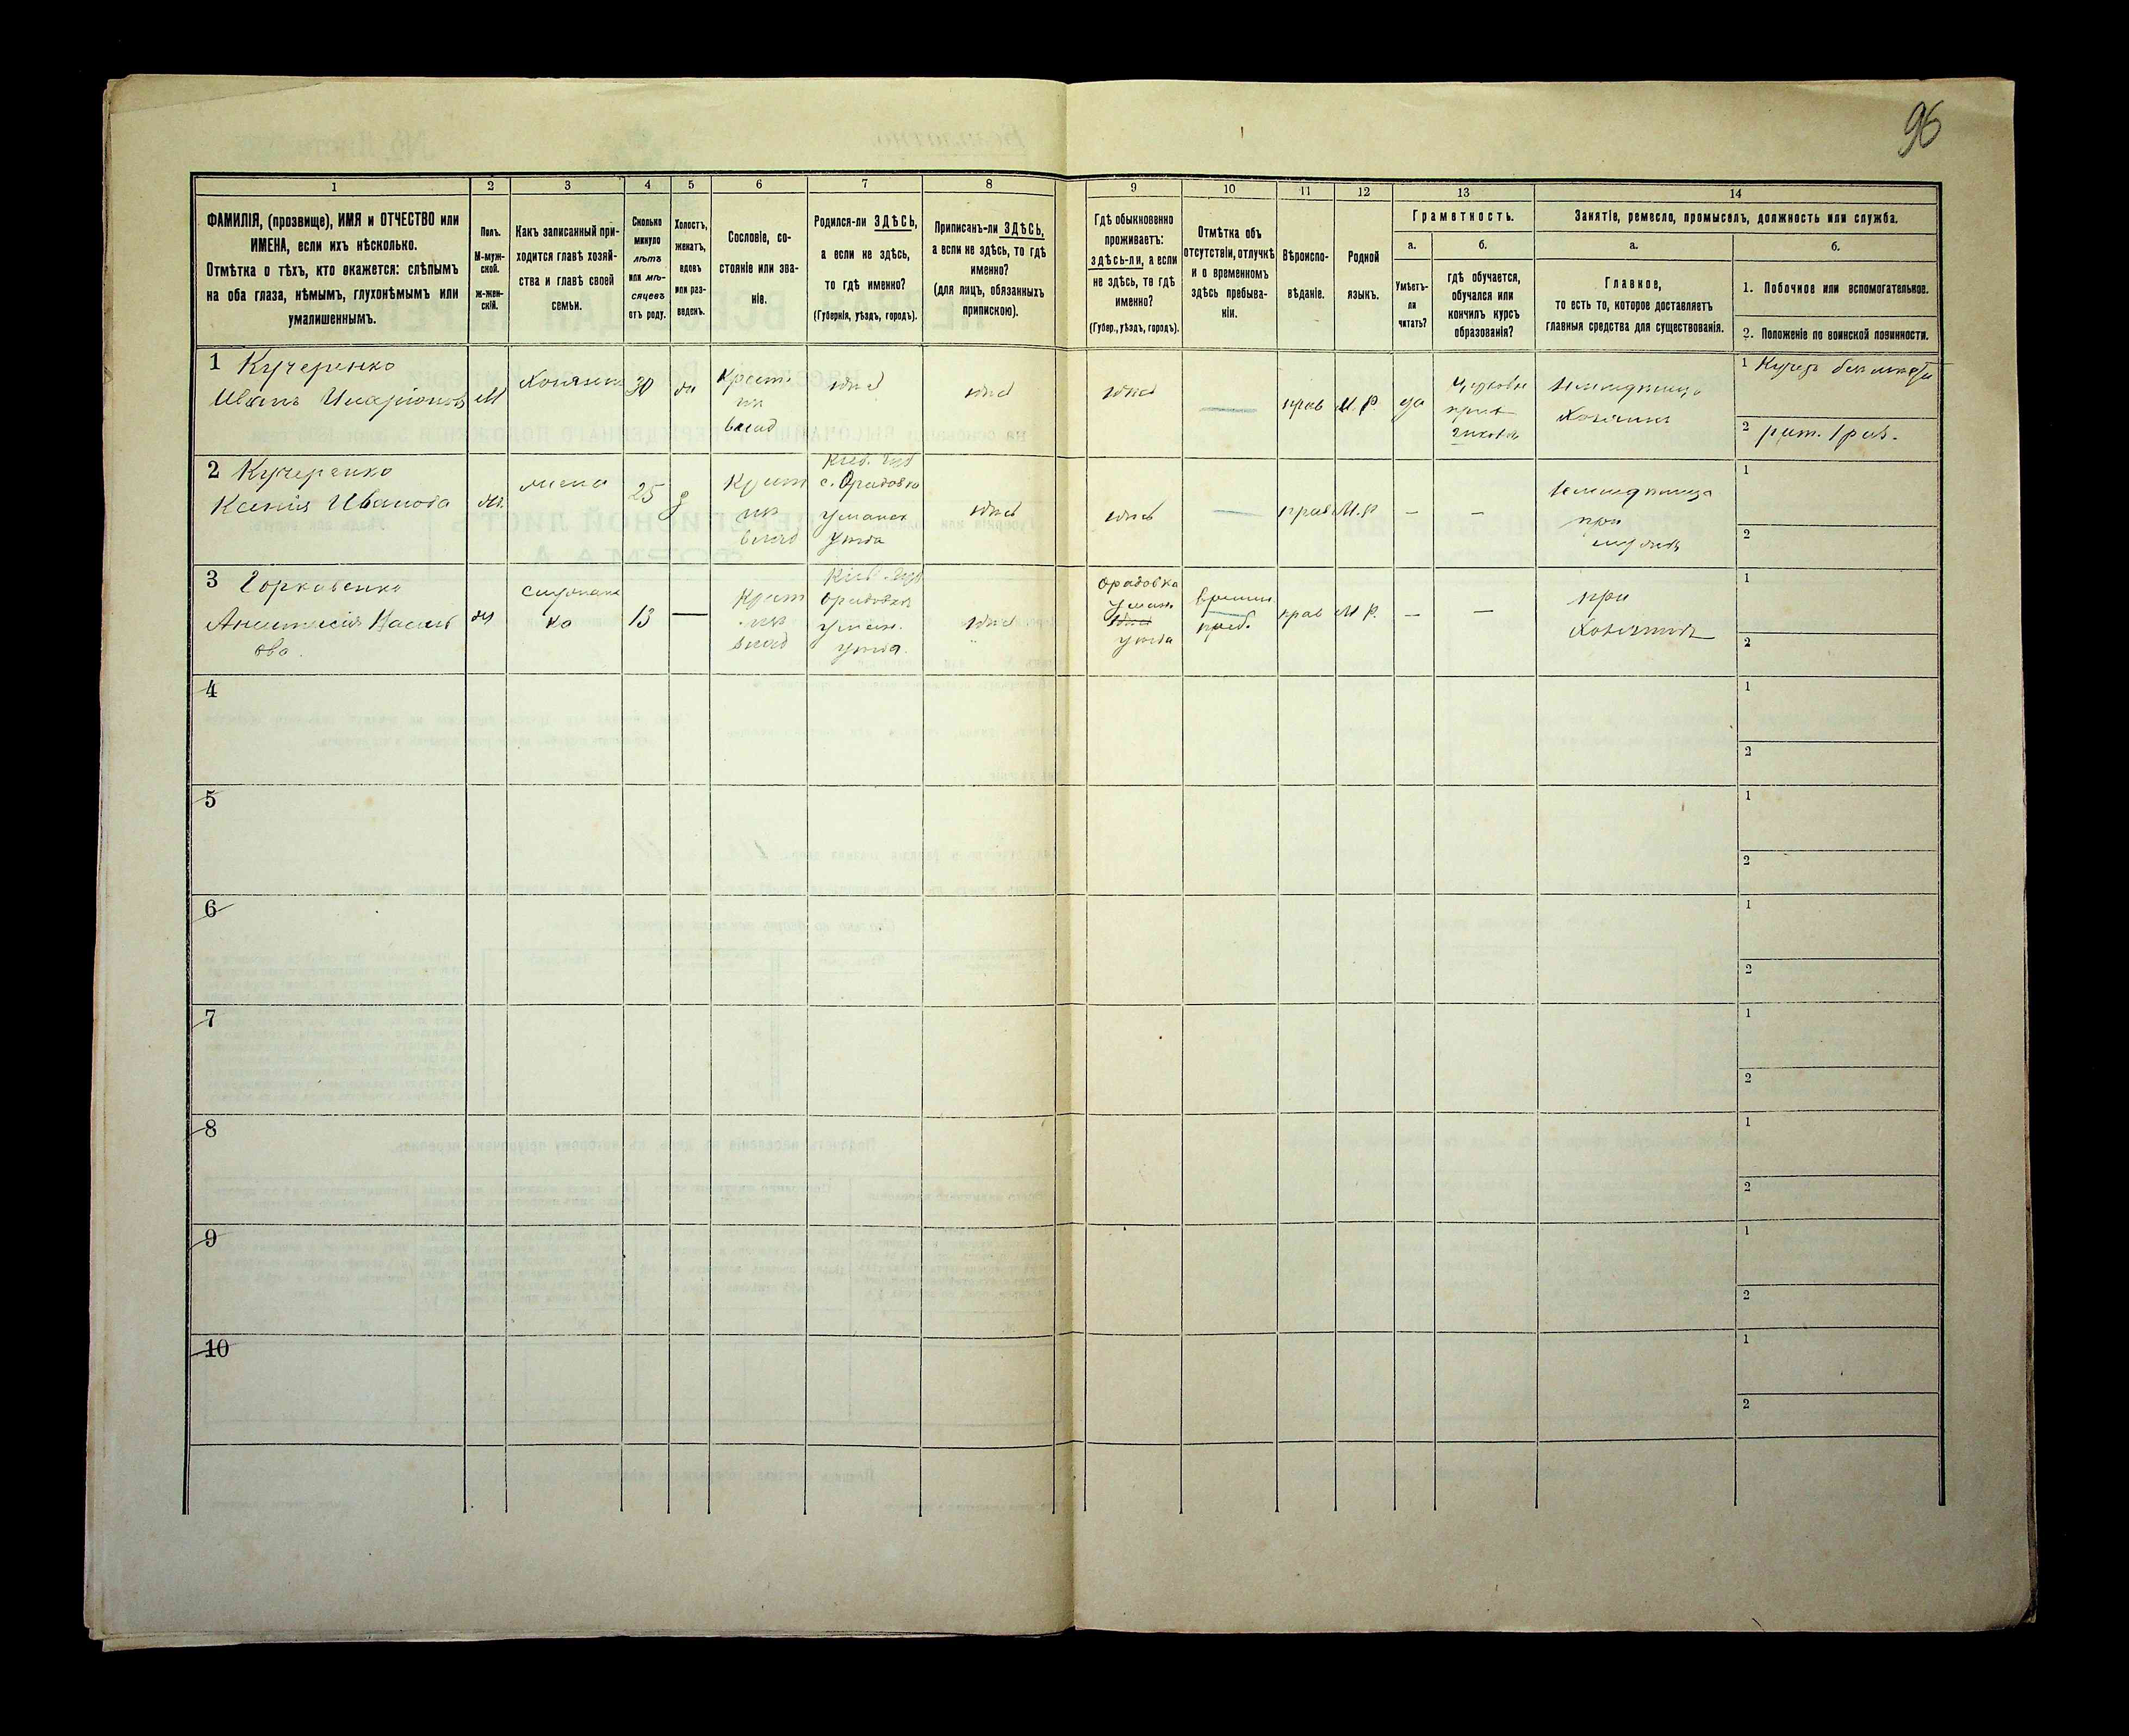 96
1
2
3
4
5
6
7
8
9
10
11
12
13
14
ФАМИЛІЯ, (прозвище), ИМЯ и ОТЧЕСТВО или
ИМЕНА, если ихъ нѣсколько.
Отмѣтка о тѣхъ, кто окажется: слѣпымъ
на оба глаза, нѣмымъ, глухонѣмымъ или
умалишеннымъ.
Полъ.
М-муж-
ской.
ж-жен-
скій.
Какъ записанный при-
ходится главѣ хозяй-
ства и главѣ своей
семьи.
Сколько
минуло
лѣтъ
или мѣ-
сяцевъ
отъ роду.
Холостъ,
женатъ,
вдовъ
или раз-
веденъ.
Сословіе, со-
стояніе или зва-
ніе.
Родился-ли ЗДѢСЬ,
а если не здѣсь,
то гдѣ именно?
(Губернія, уѣздъ, городъ).
Приписанъ-ли ЗДѢСЬ,
а если не здѣсь, то гдѣ
именно?
(для лицъ, обязанныхъ
припискою).
Гдѣ обыкновенно
проживаетъ:
здѣсь-ли, а если
не здѣсь, то гдѣ
именно?
(Губер., уѣздъ, городъ).
Отмѣтка объ
отсутствіи, отлучкѣ
и о временномъ
здѣсь пребыва-
ніи.
Вѣроиспо-
вѣданіе.
Родной
языкъ.
Грамотность.
а.
Умѣетъ-
ли
читать?
б.
гдѣ обучается,
обучался или
кончилъ курсъ
образованія?
Занятіе, ремесло, промыселъ, должность или служба.
а.
Главное,
то есть то, которое доставляетъ
главныя средства для существованія.
б.
1. Побочное или вспомогательное.
2. Положеніе по воинской повинности.
1 Кучеренко
Иванъ Иларіоновъ
М
Хозяинъ
30
Крест.
из
влад
здѣсь
здѣсь
здѣсь
—
прав
М. Р.
да
Хозяинъ
1
2
2 Кучеренко
Ксенія Иванова
жена
25
Крест
из
влад
Кіев. губ
с. Орадовка
Уманск
Уѣзда
здѣсь
здѣсь
—
прав
М. Р
—
—
при
мужѣ
1
2
3 Горкавенко
Анастасія
13
—
Крест
из
влад
Кіев. губ
Орадовка
Уман.
Уѣзда.
здѣсь
Орадовка
Уман.
здѣсь
уѣзда
времен
преб.
прав
М Р.
—
—
при
Хозяинѣ
1
2
4
1
2
5
1
2
6
1
2
7
1
2
8
1
2
9
1
2
10
1
2